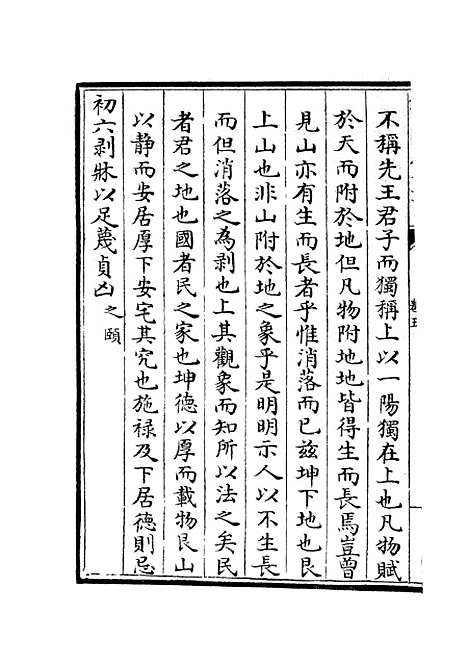 不稱先王君子而獨稱上以一陽獨在上也凡物賦
於天而附於地但凡物附地地皆得生而長焉豈曽
見山亦有生而長者乎惟消落而已兹坤下地也艮
上山也非山附於地之象乎是明明示人以不生長
而但消落之為剥也上其觀象而知所以法之矣民
者君之地也國者民之家也坤德以厚而載物艮山
以静而安居厚下安宅其究也施禄及下居德則忌
初六剥牀以足蔑貞凶之頤